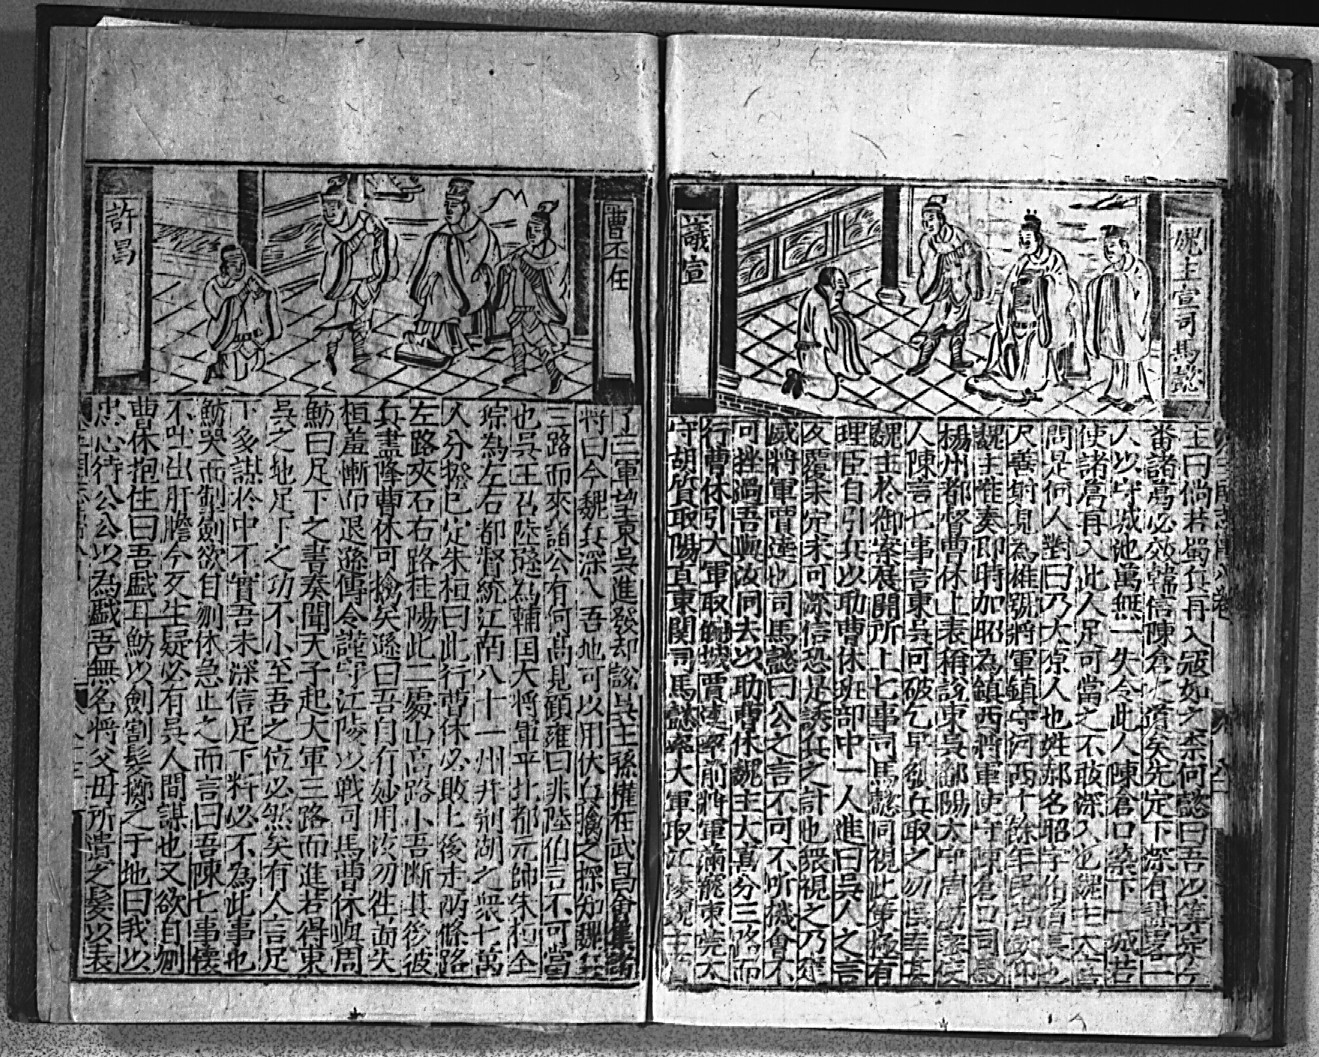 魏主宣司馬懿
議宣
主曰倘若蜀兵再入寇如之奈何懿曰吾以筭定了
番諸葛必效韓信陳倉之道矣先定下深有謀畧一
人以守城池萬無一失令此人陳倉口築下一城若
使諸葛再入此人足可當之不敢深入也魏主大喜
問是何人對曰乃太原人也姓郝名昭字伯道
尺善射見為雄號將軍鎮守河西十餘年民
魏主惟奏即時加昭為鎮西將軍使守陳倉口司馬
楊州都督曹休上表稱說東吳鄱陽太守周魴
人陳言七事言東吳可破乞早發兵取之勿
魏主於御案展開所上七事司馬懿同視此策極有
理臣自引兵以助曹休班部中一人進曰吳人之言
反覆未定未可深信恐是誘兵之計也猥視之乃建
威將軍賈逵也司馬懿曰公之言不可不听機會不
可挫過吾與汝同去以助曹休魏主大喜分三路而
行曹休引大軍取皖城賈逵率前將軍滿寵東莞太
守胡質取陽直東関司馬懿率大軍取江陵魏主
曹丕在
許昌
了三軍望東吳進發却說吳主孫權在武昌會集諸
將曰今魏兵深入吾地可以用伏兵擒之探知魏兵
三路而來諸公有何高見顧雍曰非陸伯言不可當
也吳王召陸遜為輔国大將軍平北都元帥朱桓全
琮為左右都督統江南八十一州并荊湖之衆七萬
人分撥已定朱桓曰此行曹休必敗上後走两條路
左路夾石右路桂陽此二處山高路小吾斷其後彼
兵盡降曹休可擒矣遜曰吾自有妙用汝勿往面失
桓羞慚而退遜傳令謹守江陵以戰司馬曹休與周
魴曰足下之書奏聞天子起大軍三路而進若得東
吳之地足下之功不小至吾之位必然矣有人言足
下多謀於中不實吾未深信足下料必不為此事也
魴哭而掣劍欲自刎休急止之而言曰吾陳七事懷
不吐出肝膽今反生疑必有吳人間謀也又欲自刎
曹休抱住曰吾戱耳魴以劍割髮擲之于地曰我以
忠心待公公以為戱吾無名將父母所遺之髮以表